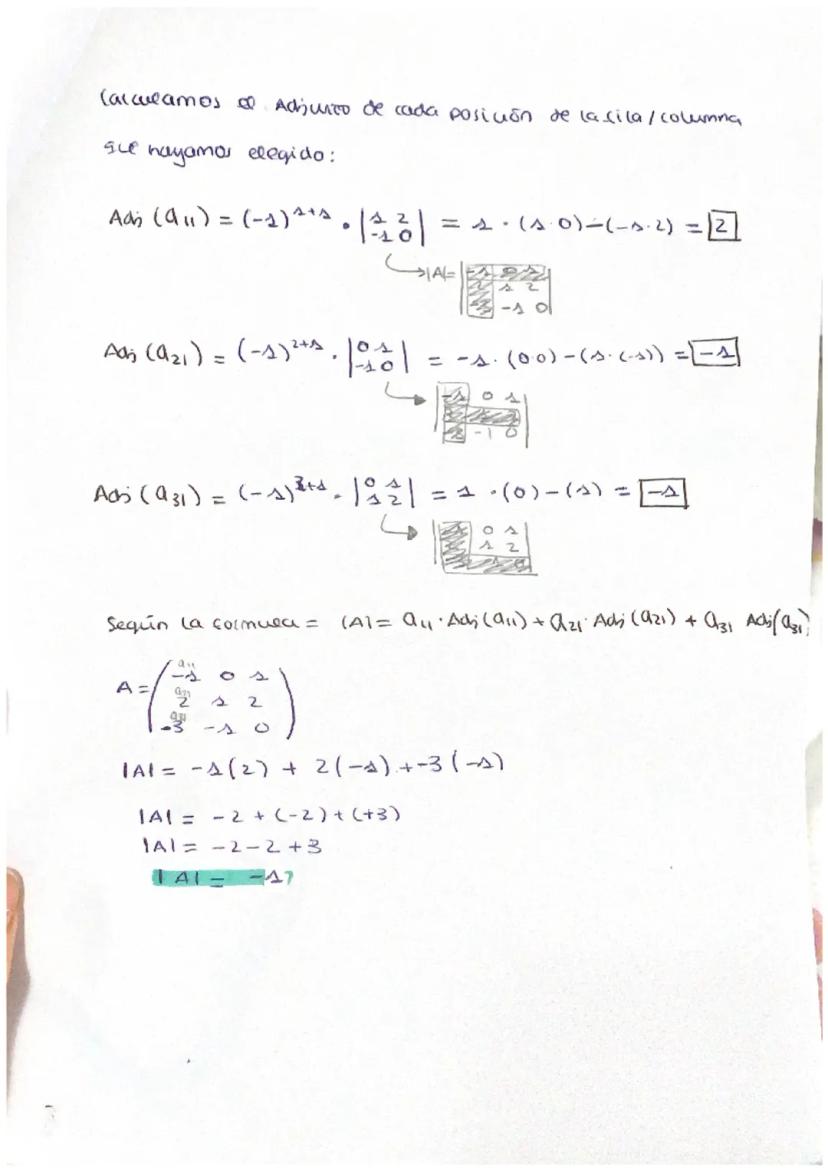 Calculamos el Adjunto de cada posición de la fila/columna
que hayamos elegido:
Adj (a11) = (-1)^1+1 · |1 2 / -1 0| = 1 · (1·0)-(-1·2) = 2
→|A|= |-1 0 1
2 1 2
-3 -1 0|
Adj (a21) = (-1)^2+1 · |0 1 / -1 0| = -1 · (0·0) - (1·(-1)) = -1
-1 0 1
-1 0
Adj (a31) = (-1)^3+1 · |0 1 / 1 2| = 1 · (0) - (1) = -1
0 1
1 2
Según la formula = |A| = a11 · Adj (a11) + a21 · Adj (a21) + a31 Adj (a31)
a11
A = (-1 0 1
a21
2 1 2
a31
-3 -1 0)
|A| = -1(2) + 2(-1) + -3(-1)
|A| = -2 + (-2) + (+3)
|A| = -2 - 2 + 3
|A| = -1